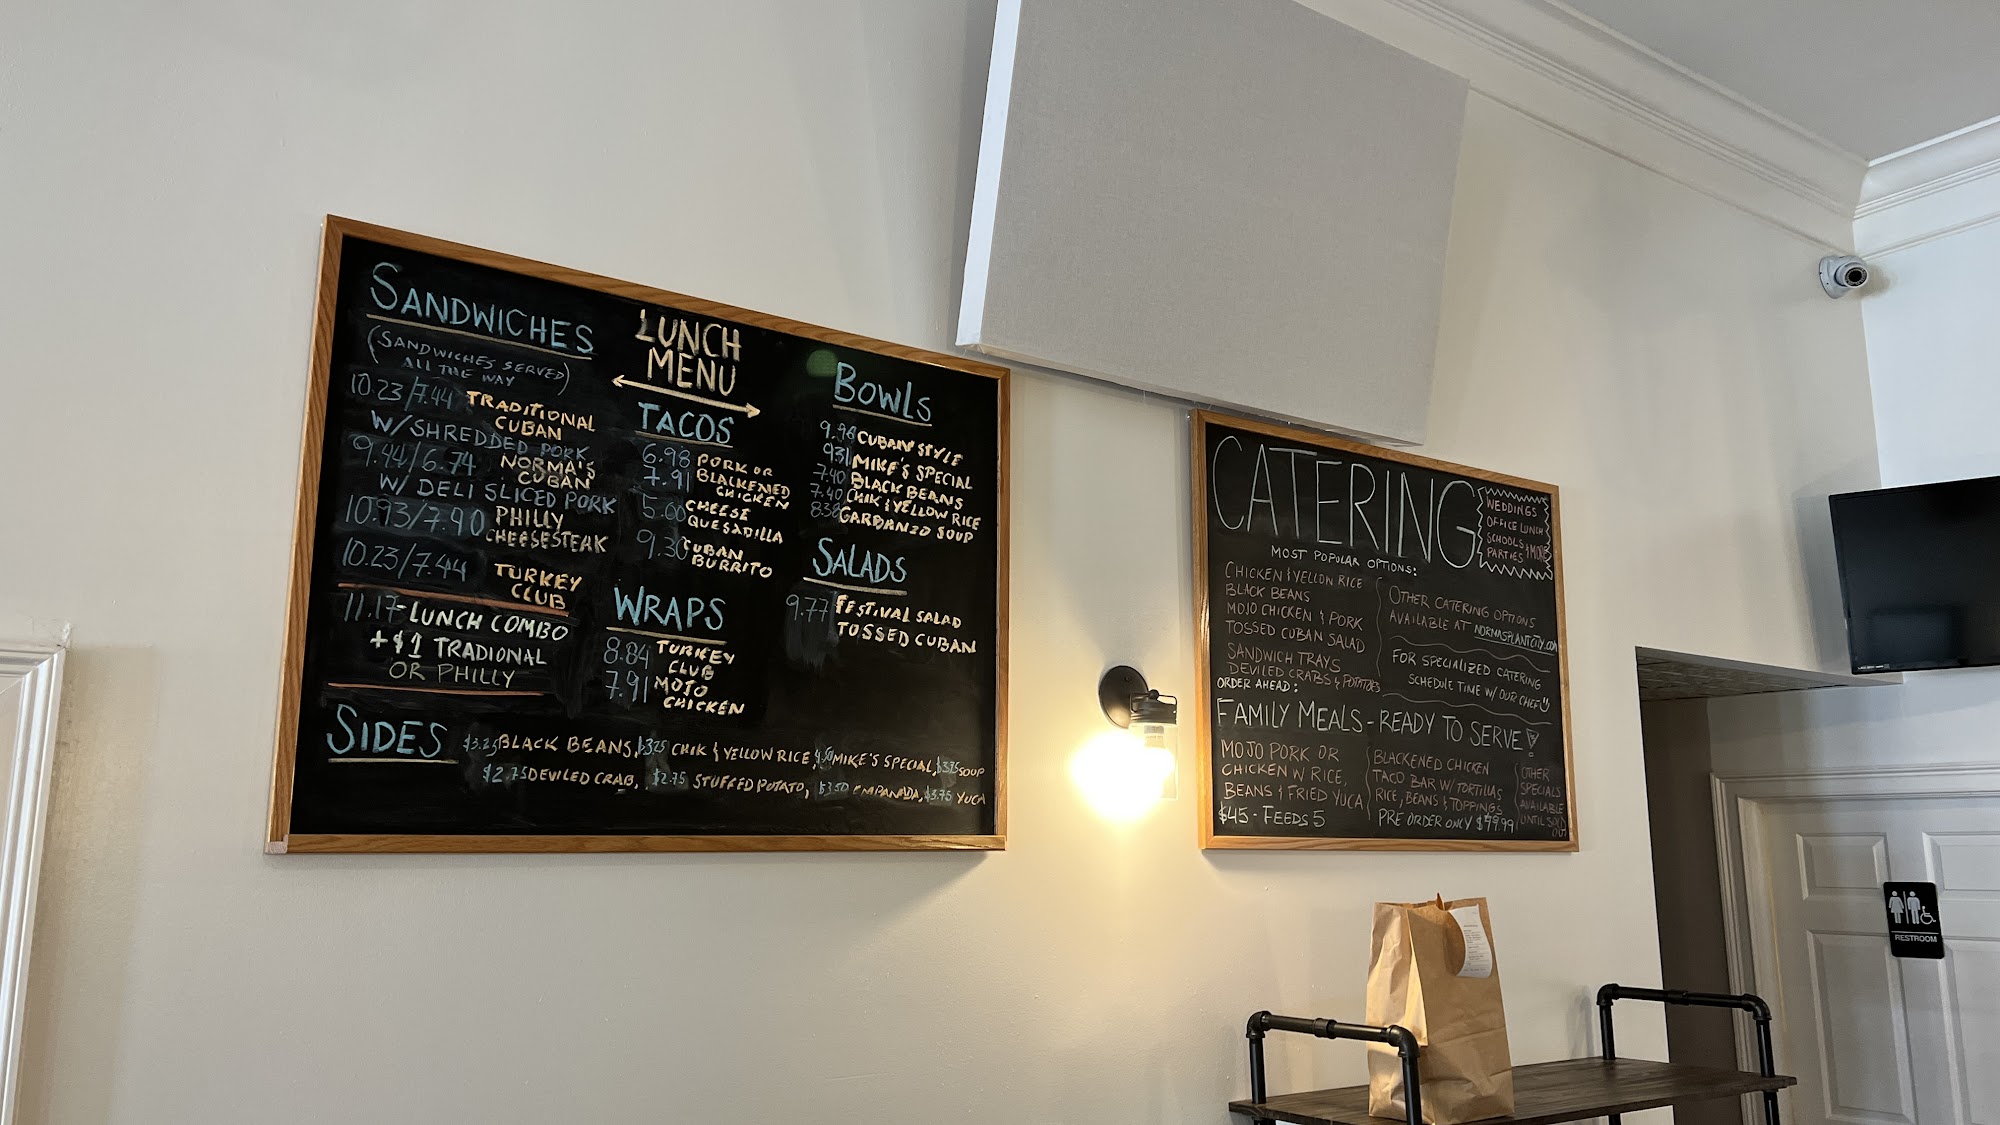 SANDWICHES
(SANDWICHES SERVED
ALL THE WAY)
10.23/7.44 TRADITIONAL
CUBAN
W/ SHREDDED PORK
9.44/6.74 NORMA'S
CUBAN
W/ DELI SLICED PORK
10.93/7.90 PHILLY
CHEESESTEAK
10.23/7.44 TURKEY
CLUB
11.17-LUNCH COMBO
+$1 TRADIONAL
OR PHILLY
LUNCH
MENU
TACOS
6.98 PORK OR
7.91 BLACKENED
CHICKEN
5.00 CHEESE
QUESADILLA
9.30 CUBAN
BURRITO
WRAPS
8.84 TURKEY
CLUB
7.91 MOJO
CHICKEN
BOWLS
CUBAN STYLE
9.31 MIKE'S SPECIAL
7.40 BLACK BEANS
7.40 CHIK & YELLOW RICE
8.38 GARBANZO SOUP
SALADS
9.77 FESTIVAL SALAD
TOSSED CUBAN
SIDES
$3.25 BLACK BEANS, $3.25 CHIK & YELLOW RICE, MIKE'S SPECIAL, $3.75 SOUP
$2.75 DEVILED CRAB, $2.75 STUFFED POTATO, $3.50 EMPANADA, $3.75 YUCA
CATERING
WEDDINGS
OFFICE LUNCH
SCHOOLS
PARTIES & MORE
MOST POPULAR OPTIONS:
CHICKEN & YELLOW RICE
BLACK BEANS
MOJO CHICKEN & PORK
TOSSED CUBAN SALAD
SANDWICH TRAYS
DEVILED CRABS & POTATOES
OTHER CATERING OPTIONS
AVAILABLE AT NORMASPLANTCITY.COM
FOR SPECIALIZED CATERING
SCHEDULE TIME W/ OUR CHEF
ORDER AHEAD:
FAMILY MEALS - READY TO SERVE
MOJO PORK OR
CHICKEN W RICE,
BEANS & FRIED YUCA
$45 - FEEDS 5
BLACKENED CHICKEN
TACO BAR W/ TORTILLAS
RICE, BEANS & TOPPINGS
PRE ORDER ONLY $79.99
OTHER
SPECIALS
AVAILABLE
UNTIL SOLD
OUT
RESTROOM